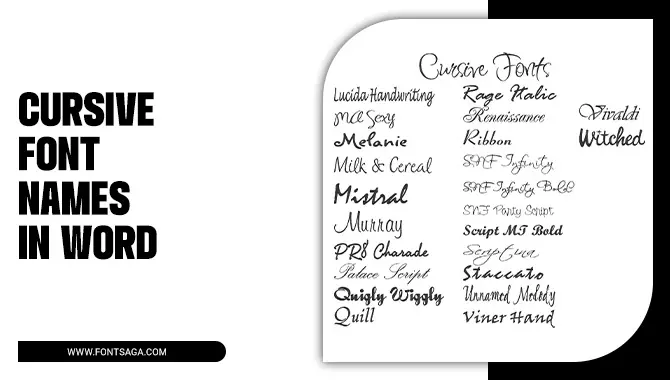 CURSIVE
FONT
NAMES
IN WORD
WWW.FONTSAGA.COM
Cursive Fonts
Lucida Handwriting
MA Sexy
Melanie
Milk & Cereal
Mistral
Murray
PR8 Charade
Palace Script
Quigly Wiggly
Quill
Rage Italic
Renaissance
Ribbon
SNF Infinity
SNF Infinity Bold
SNF Party Script
Script MT Bold
Scriptina
Staccato
Unnamed Melody
Viner Hand
Vivaldi
Witched